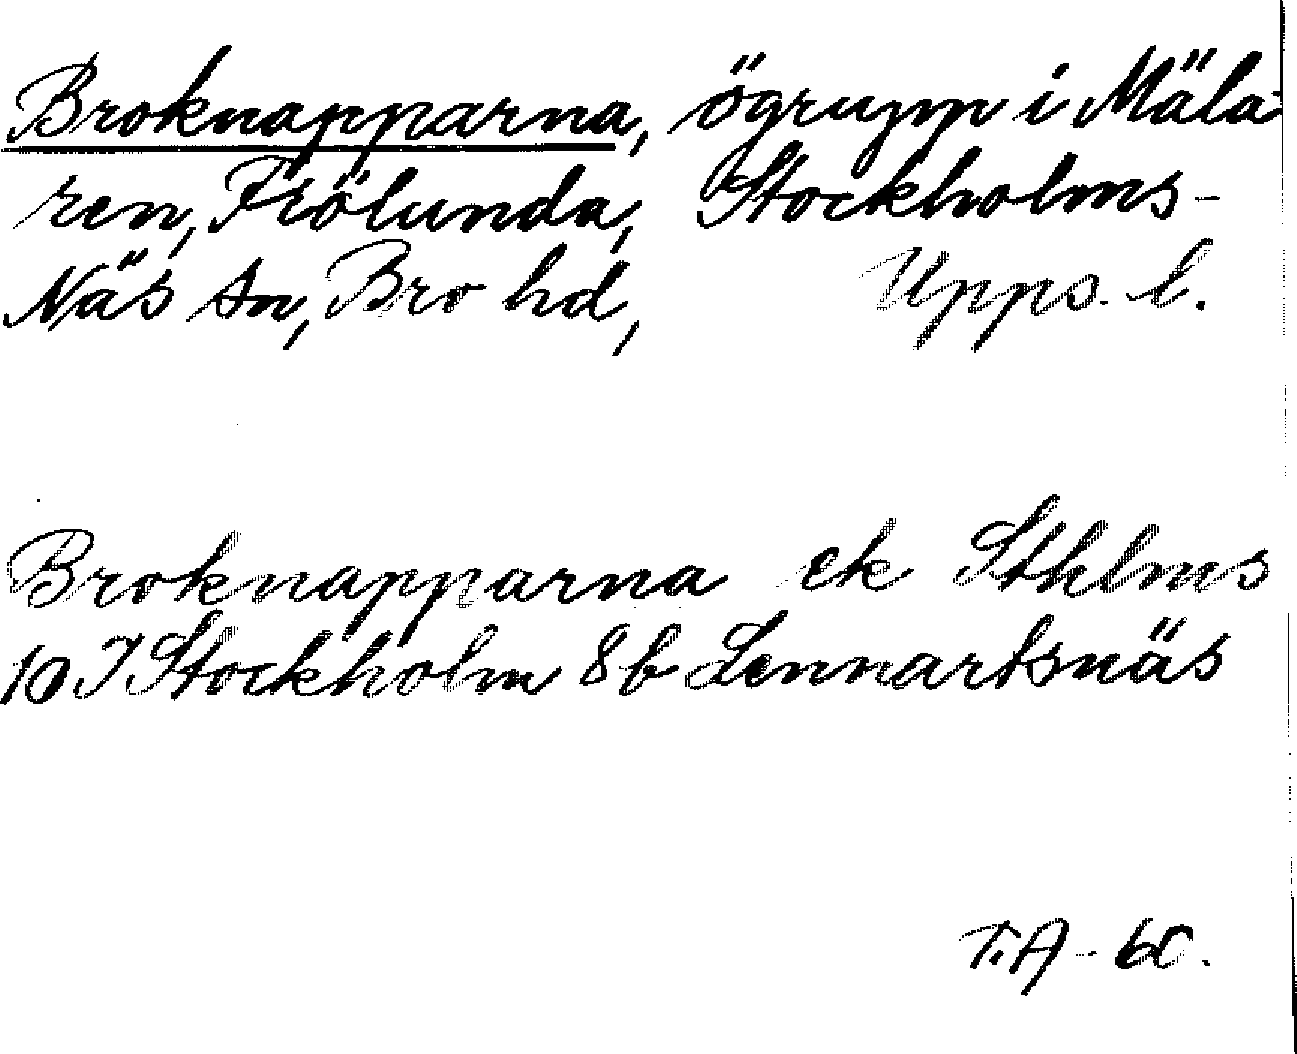 Broknapparna, ögrupp i Mäla-
ren, Frölunda, Stockholms-
Näs sn, Bro hd, Upps. l.
Broknapparna ek Sthlms
10 I Stockholm 8b Lennartsnäs
T.A - 60.